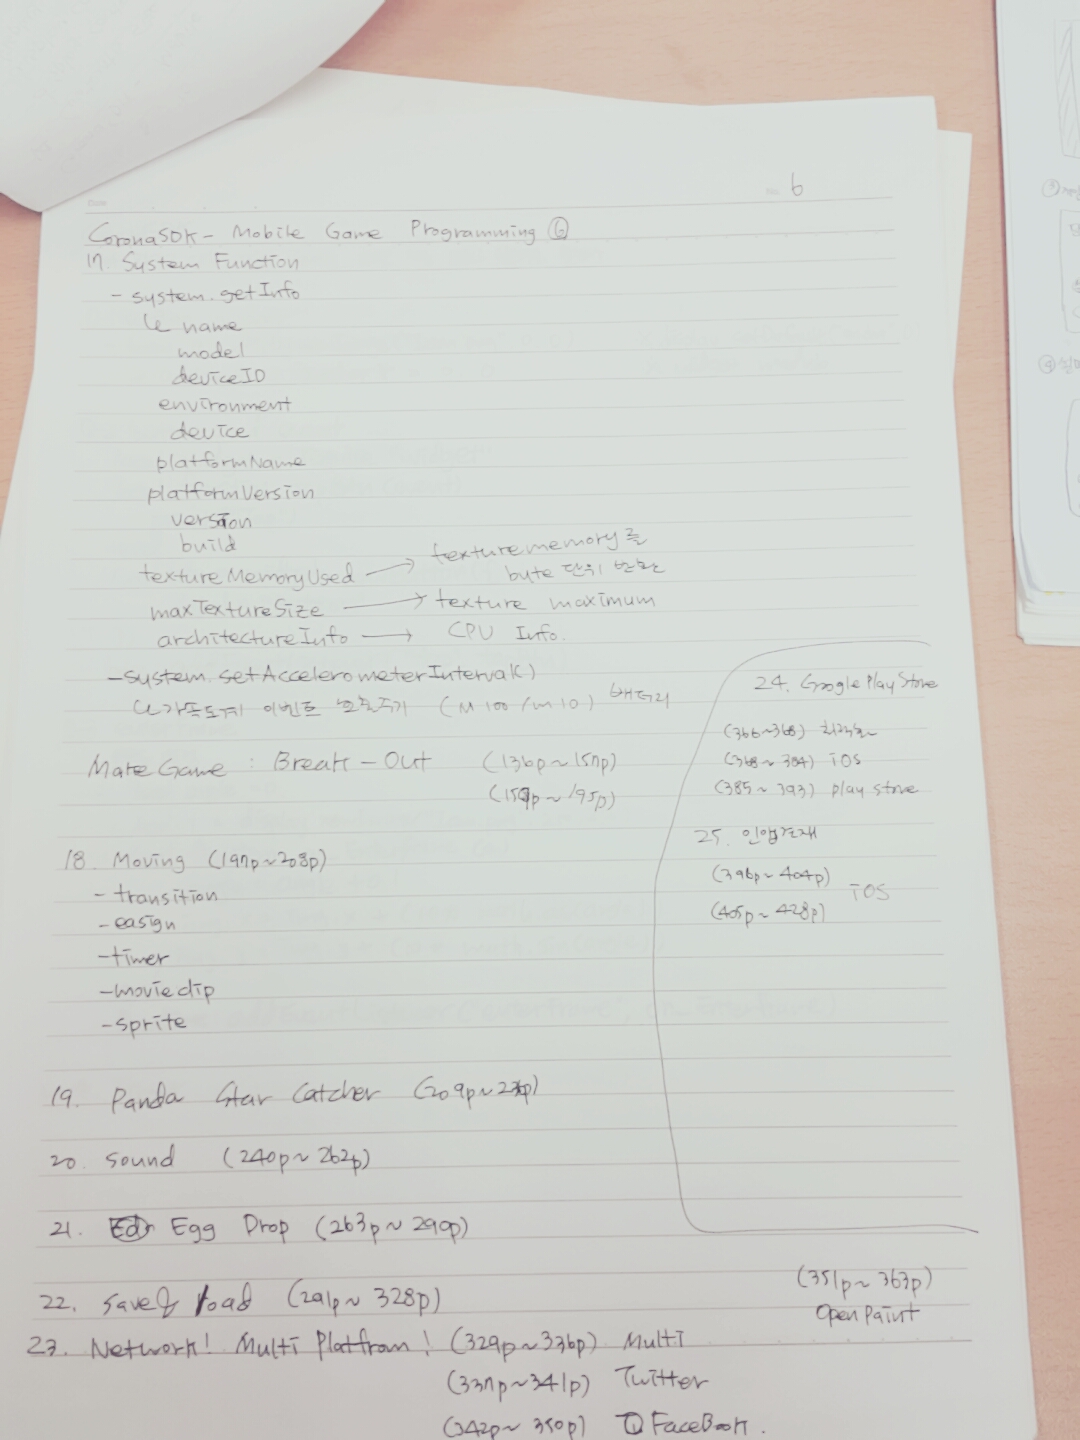 6
CoronaSDK - Mobile Game Programming ⑥
17. System Function
- system.getInfo
name
model
deviceID
environment
device
platformName
platformVersion
version
build
textureMemoryUsed → texturememory를
byte 단위 반환
maxTextureSize → texture maximum
architectureInfo → CPU Info.
- system.setAccelerometerInterval()
가속도계 이벤트 호출주기 (M100/m10) 배터리
Make Game : Break-Out (136p~157p)
(159p~195p)
18. Moving (197p~208p)
- transition
- easign
- timer
- movieclip
- sprite
19. Panda Star Catcher (209p~
20. sound (240p~262p)
21. Egg Drop (263p~290p)
22. save & load (291p~328p)
23. Network! Multi Platfrom! (329p~336p) Multi
(337p~341p) Twitter
(342p~350p) FaceBook.
(351p~363p)
OpenPaint
24. Google Play Store
(366~368)
(368~384) iOS
(385~393) play store
25. 인앱결재
(396p~404p) iOS
(405p~428p)